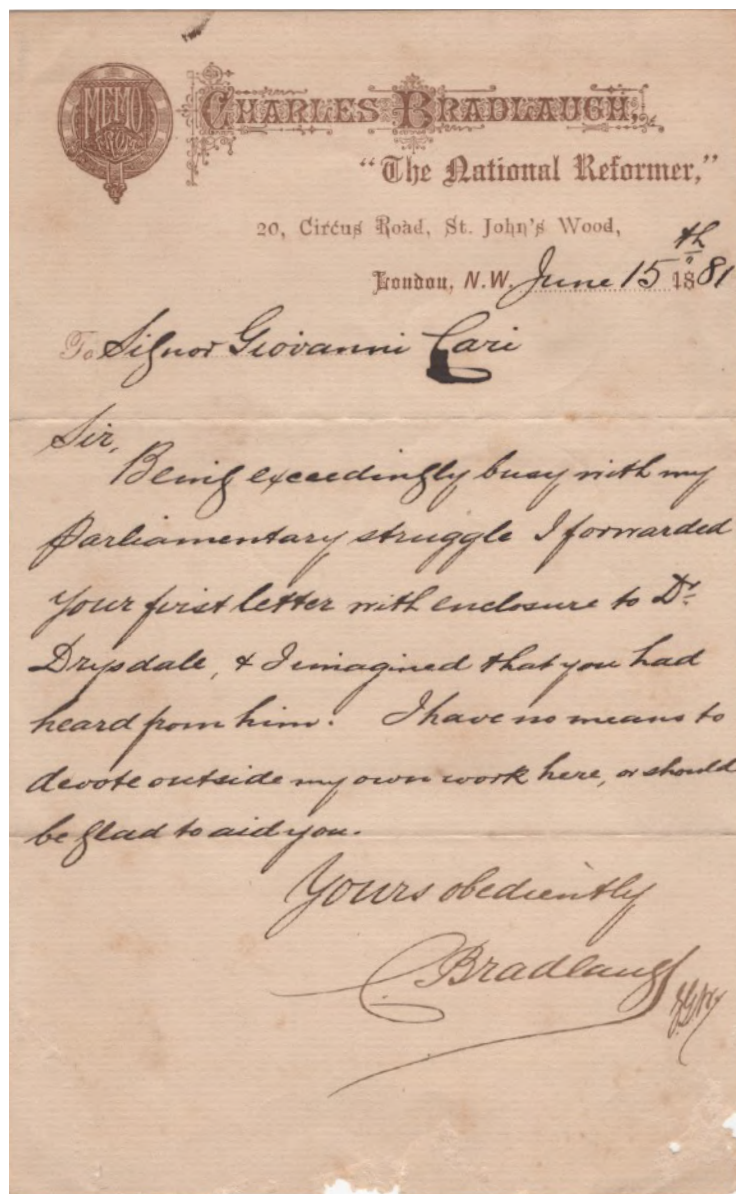 MEMO
FROM
CHARLES BRADLAUGH,
"The National Reformer,"
20, Circus Road, St. John's Wood,
London, N.W. June 15th 1881
To Signor Giovanni Cari
Sir,
Being exceedingly busy with my
Parliamentary struggle I forwarded
your first letter with enclosure to Dr
Drysdale, & I imagined that you had
heard from him. I have no means to
devote outside my own work here, or should
be glad to aid you.
Yours obediently
C. Bradlaugh